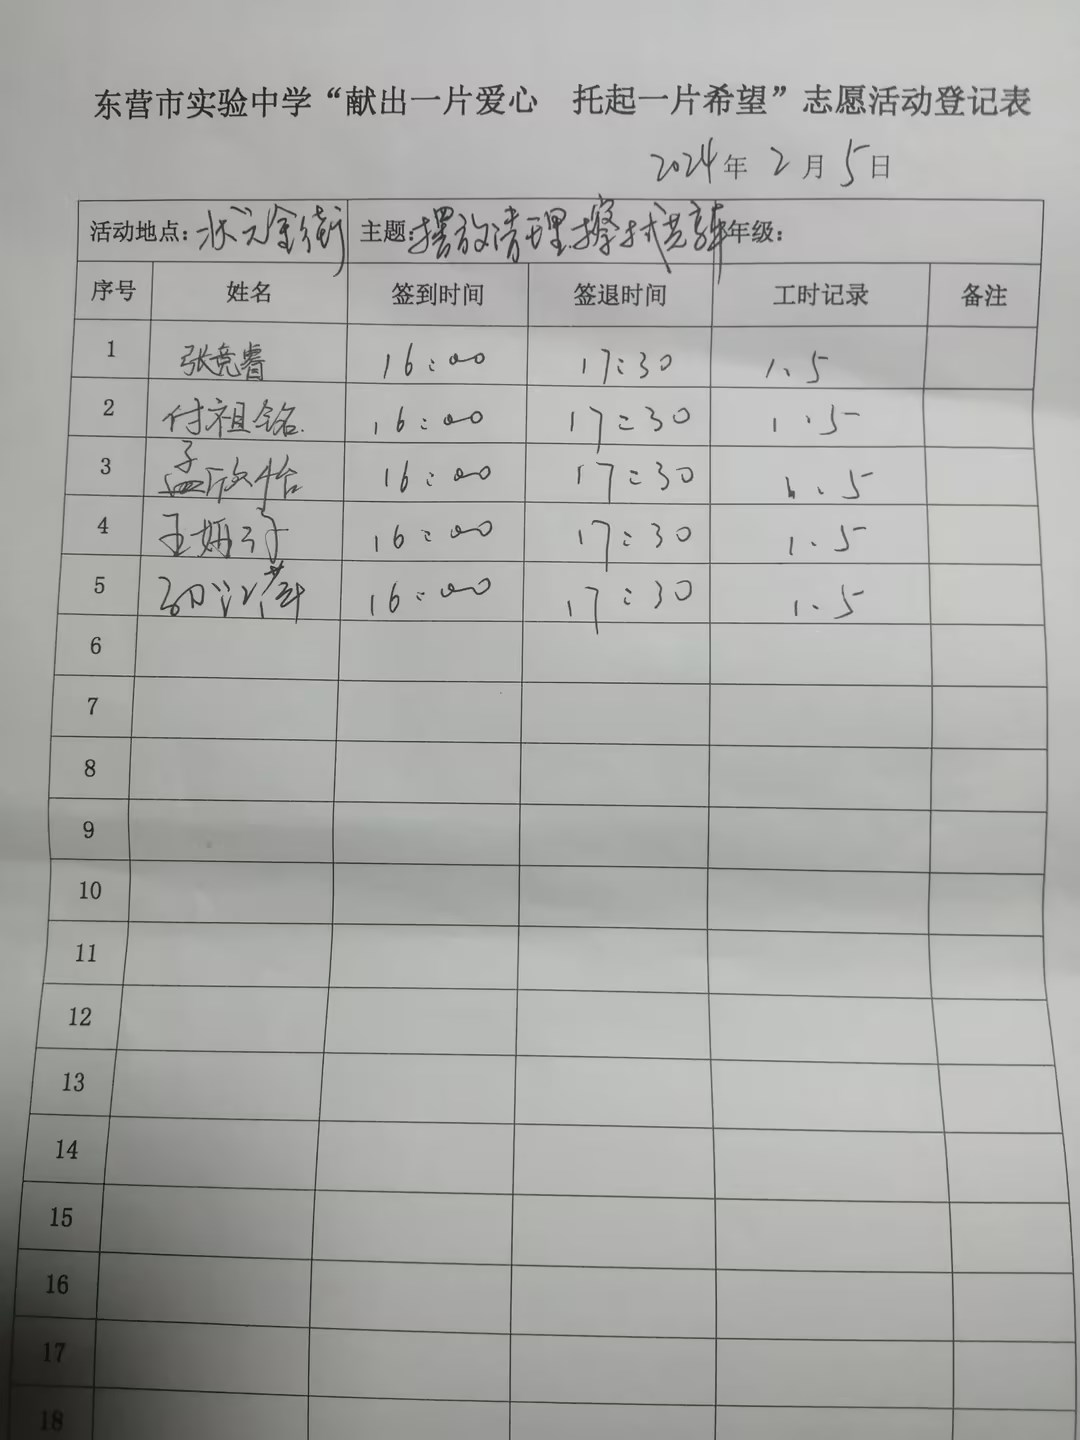 东营市实验中学“献出一片爱心 托起一片希望”志愿活动登记表
2024年2月5日
活动地点:状元金街 主题:摆放清理擦拭共享单车 年级:
序号 姓名 签到时间 签退时间 工时记录 备注
1 张竞睿 16:00 17:30 1.5
2 付祖铭 16:00 17:30 1.5
3 孟欣怡 16:00 17:30 1.5
4 王 16:00 17:30 1.5
5 16:00 17:30 1.5
6
7
8
9
10
11
12
13
14
15
16
17
18